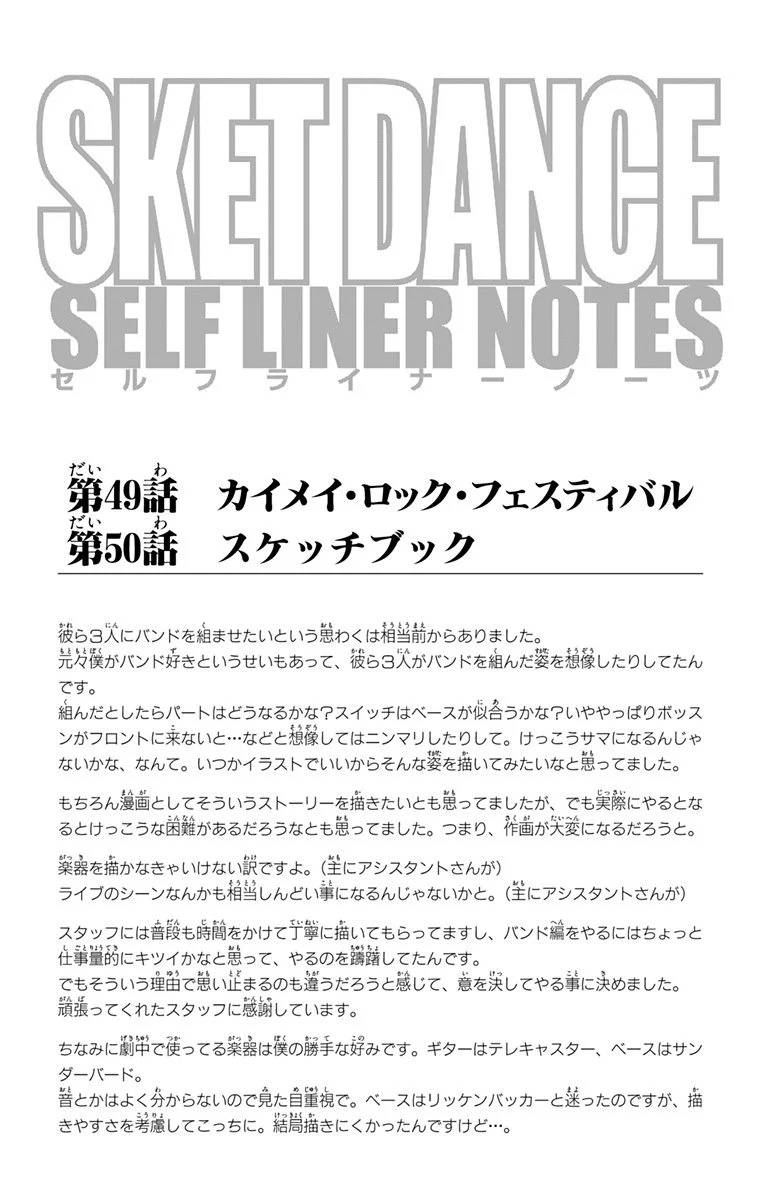 SKET DANCE
SELF LINER NOTES
セルフライナーノーツ
第49話 カイメイ・ロック・フェスティバル
第50話 スケッチブック
彼ら3人にバンドを組ませたいという思わくは相当前からありました。
元々僕がバンド好きというせいもあって、彼ら3人がバンドを組んだ姿を想像したりしてたん
です。
組んだとしたらパートはどうなるかな?スイッチはベースが似合うかな?いややっぱりボッス
ンがフロントに来ないと…などと想像してはニンマリしたりして。けっこうサマになるんじゃ
ないかな、なんて。いつかイラストでいいからそんな姿を描いてみたいなと思ってました。
もちろん漫画としてそういうストーリーを描きたいとも思ってましたが、でも実際にやるとな
るとけっこうな困難があるだろうなとも思ってました。つまり、作画が大変になるだろうと。
楽器を描かなきゃいけない訳ですよ。(主にアシスタントさんが)
ライブのシーンなんかも相当しんどい事になるんじゃないかと。(主にアシスタントさんが)
スタッフには普段も時間をかけて丁寧に描いてもらってますし、バンド編をやるにはちょっと
仕事量的にキツイかなと思って、やるのを躊躇してたんです。
でもそういう理由で思い止まるのも違うだろうと感じて、意を決してやる事に決めました。
頑張ってくれたスタッフに感謝しています。
ちなみに劇中で使ってる楽器は僕の勝手な好みです。ギターはテレキャスター、ベースはサン
ダーバード。
音とかはよく分からないので見た目重視で。ベースはリッケンバッカーと迷ったのですが、描
きやすさを考慮してこっちに。結局描きにくかったんですけど…。